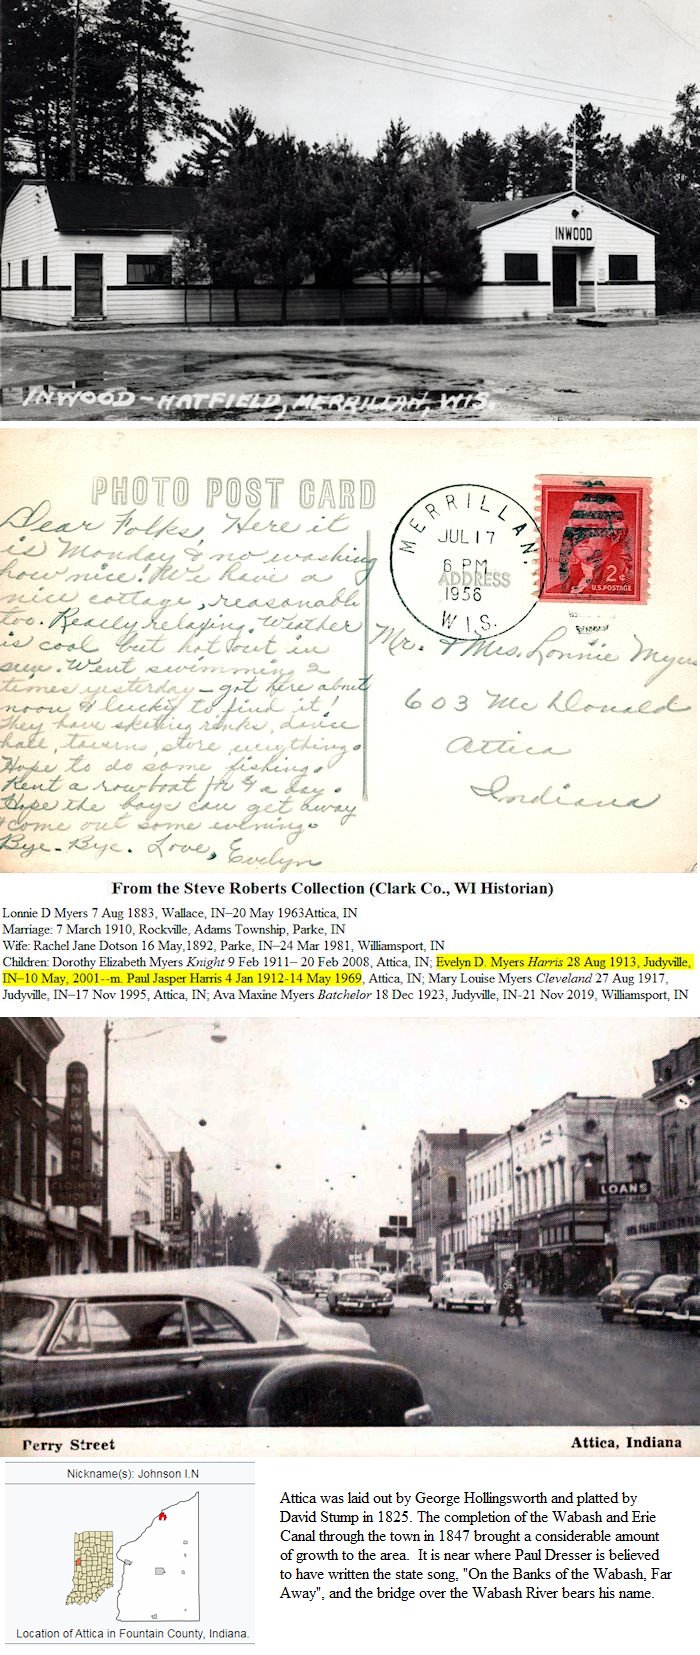 INWOOD
INWOOD - HATFIELD, MERRILLAN, WIS.
PHOTO POST CARD
Dear Folks, Here it
is Monday & no washing
how nice! We have a
nice cottage, reasonable
too. Really relaxing. Weather
is cool but hot out in
sun. Went swimming 2
times yesterday - got here about
noon & lucky to find it!
They have skating rinks, dance
hall, taverns, store everything.
Hope to do some fishing.
Rent a rowboat for a day.
Hope the boys can get away
& come out some evening.
Bye-Bye. Love, Evelyn
MERRILLAN.
JUL 17
6 PM
ADDRESS
1956
WIS.
2¢
U.S. POSTAGE
Mr. & Mrs. Lonnie Myers
603 Mc Donald
Attica
Indiana
From the Steve Roberts Collection (Clark Co., WI Historian)
Lonnie D Myers 7 Aug 1883, Wallace, IN–20 May 1963Attica, IN
Marriage: 7 March 1910, Rockville, Adams Township, Parke, IN
Wife: Rachel Jane Dotson 16 May,1892, Parke, IN–24 Mar 1981, Williamsport, IN
Children: Dorothy Elizabeth Myers Knight 9 Feb 1911– 20 Feb 2008, Attica, IN; Evelyn D. Myers Harris 28 Aug 1913, Judyville,
IN–10 May, 2001--m. Paul Jasper Harris 4 Jan 1912-14 May 1969, Attica, IN; Mary Louise Myers Cleveland 27 Aug 1917,
Judyville, IN–17 Nov 1995, Attica, IN; Ava Maxine Myers Batchelor 18 Dec 1923, Judyville, IN-21 Nov 2019, Williamsport, IN
NEWMARK
LOANS
Perry Street
Attica, Indiana
Nickname(s): Johnson I.N
Location of Attica in Fountain County, Indiana.
Attica was laid out by George Hollingsworth and platted by
David Stump in 1825. The completion of the Wabash and Erie
Canal through the town in 1847 brought a considerable amount
of growth to the area.  It is near where Paul Dresser is believed
to have written the state song, "On the Banks of the Wabash, Far
Away", and the bridge over the Wabash River bears his name.